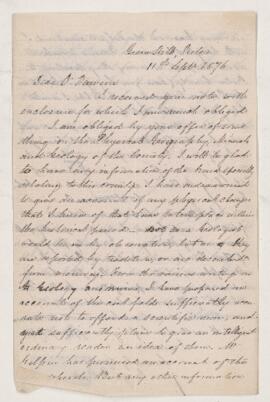 11th Sept. 1876
Dear Dr. Dawson
I received your note with
enclosure for which I am much obliged
I am obliged by your offer of some
thing on the Physical Geography, Mineral
and Geology of the County. I will be glad
to have any information of the kind specially
relating to this county. I have endeavoured
to give an account of any physical changes
that I know of that have taken place within
the historical period. Not as a Geologist
would be in his observation, but as they
are reported by tradition or are
from memory. From the various writings on
the Geology and mines, I have prepared an
account of the coal fields sufficiently accu
rate not to offend a scientific man, and
yet sufficiently plain to give an intelligent
ordinary reader an idea of them. Mr
has promised an account of the
But any other information